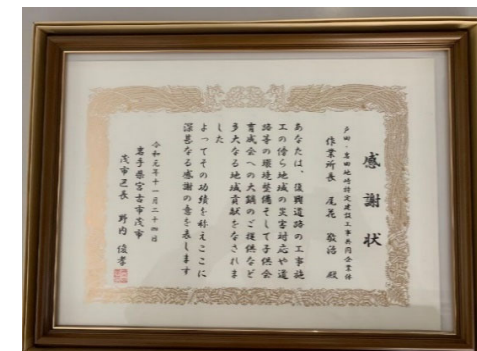 感謝状
戸田・岩田地崎特定建設工事共同企業体
作業所長 尾花 敬浩 殿
あなたは、復興道路の工事施
工の傍ら地域の災害対応や道
路等の環境整備そして子供会
育成会への大鵬のご提供など
多大なる地域貢献をなされま
した
よってその功績を称えここに
深甚なる感謝の意を表します
令和元年十一月二十四日
岩手県宮古市茂市
茂市区長 野内 俊孝